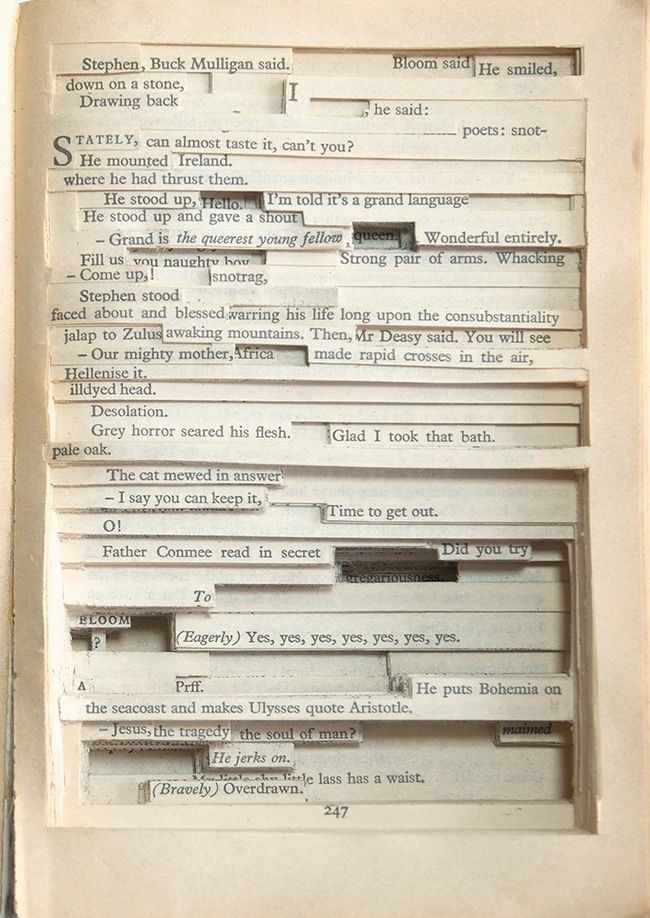 Stephen, Buck Mulligan said. Bloom said He smiled,
down on a stone,
I
Drawing back , he said:
poets: snot-
STATELY, can almost taste it, can't you?
He mounted Ireland.
where he had thrust them.
He stood up, Hello. I'm told it's a grand language
He stood up and gave a shout
– Grand is the queerest young fellow, queen. Wonderful entirely.
Fill us you naughty boy Strong pair of arms. Whacking
– Come up,! snotrag,
Stephen stood
faced about and blessed warring his life long upon the consubstantiality
jalap to Zulus awaking mountains. Then, Mr Deasy said. You will see
– Our mighty mother, Africa made rapid crosses in the air,
Hellenise it.
illdyed head.
Desolation.
Grey horror seared his flesh. Glad I took that bath.
pale oak.
The cat mewed in answer
– I say you can keep it,
Time to get out.
O!
Father Conmee read in secret Did you try
gregariousness.
To
BLOOM
? (Eagerly) Yes, yes, yes, yes, yes, yes, yes.
A Prff. He puts Bohemia on
the seacoast and makes Ulysses quote Aristotle.
– Jesus, the tragedy the soul of man? maimed
He jerks on.
My little shy little lass has a waist.
(Bravely) Overdrawn.
247